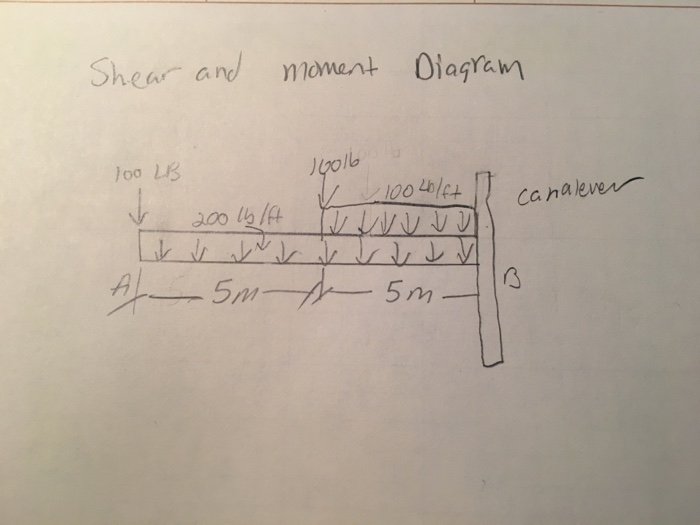 Shear and moment Diagram
100 LB
100lb
100 lb/ft
canalever
200 lb/ft
A
5m
5m
B